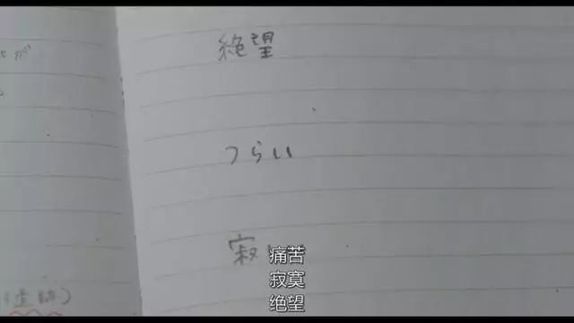 絶望
つらい
寂
痛苦
寂寞
绝望